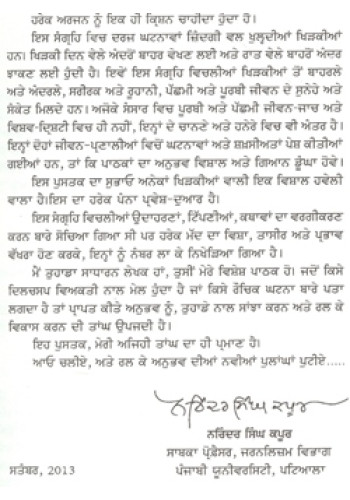 ਹਰੇਕ ਅਰਜਨ ਨੂੰ ਇਕ ਹੀ ਕ੍ਰਿਸ਼ਨ ਚਾਹੀਦਾ ਹੁੰਦਾ ਹੈ।
ਇਸ ਸੰਗ੍ਰਹਿ ਵਿਚ ਦਰਜ ਘਟਨਾਵਾਂ ਜ਼ਿੰਦਗੀ ਵਲ ਖੁਲ੍ਹਦੀਆਂ ਖਿੜਕੀਆਂ
ਹਨ। ਖਿੜਕੀ ਦਿਨ ਵੇਲੇ ਅੰਦਰੋਂ ਬਾਹਰ ਵੇਖਣ ਲਈ ਅਤੇ ਰਾਤ ਵੇਲੇ ਬਾਹਰੋਂ ਅੰਦਰ
ਝਾਕਣ ਲਈ ਹੁੰਦੀ ਹੈ। ਇਵੇਂ ਇਸ ਸੰਗ੍ਰਹਿ ਵਿਚਲੀਆਂ ਖਿੜਕੀਆਂ ਤੋਂ ਬਾਹਰਲੇ
ਅਤੇ ਅੰਦਰਲੇ, ਸਰੀਰਕ ਅਤੇ ਰੂਹਾਨੀ, ਪੱਛਮੀ ਅਤੇ ਪੂਰਬੀ ਜੀਵਨ ਦੇ ਸੁਨੇਹੇ ਅਤੇ
ਸੰਕੇਤ ਮਿਲਦੇ ਹਨ। ਅਜੋਕੇ ਸੰਸਾਰ ਵਿਚ ਪੂਰਬੀ ਅਤੇ ਪੱਛਮੀ ਜੀਵਨ-ਜਾਚ ਅਤੇ
ਵਿਸ਼ਵ-ਦ੍ਰਿਸ਼ਟੀ ਵਿਚ ਹੀ ਨਹੀਂ, ਇਨ੍ਹਾਂ ਦੇ ਚਾਨਣੇ ਅਤੇ ਹਨੇਰੇ ਵਿਚ ਵੀ ਅੰਤਰ ਹੈ।
ਇਨ੍ਹਾਂ ਦੋਹਾਂ ਜੀਵਨ-ਪ੍ਰਣਾਲੀਆਂ ਵਿਚੋਂ ਘਟਨਾਵਾਂ ਅਤੇ ਸ਼ਖ਼ਸੀਅਤਾਂ ਪੇਸ਼ ਕੀਤੀਆਂ
ਗਈਆਂ ਹਨ, ਤਾਂ ਕਿ ਪਾਠਕਾਂ ਦਾ ਅਨੁਭਵ ਵਿਸ਼ਾਲ ਅਤੇ ਗਿਆਨ ਡੂੰਘਾ ਹੋਵੇ।
ਇਸ ਪੁਸਤਕ ਦਾ ਸੁਭਾਓ ਅਨੇਕਾਂ ਖਿੜਕੀਆਂ ਵਾਲੀ ਇਕ ਵਿਸ਼ਾਲ ਹਵੇਲੀ
ਵਾਲਾ ਹੈ।ਇਸ ਦਾ ਹਰੇਕ ਪੰਨਾ ਪ੍ਰਵੇਸ਼-ਦੁਆਰ ਹੈ।
ਇਸ ਸੰਗ੍ਰਹਿ ਵਿਚਲੀਆਂ ਉਦਾਹਰਣਾਂ, ਟਿੱਪਣੀਆਂ, ਕਥਾਵਾਂ ਦਾ ਵਰਗੀਕਰਣ
ਕਰਨ ਬਾਰੇ ਸੋਚਿਆ ਗਿਆ ਸੀ ਪਰ ਹਰੇਕ ਮੱਦ ਦਾ ਵਿਸ਼ਾ, ਤਾਸੀਰ ਅਤੇ ਪ੍ਰਭਾਵ
ਵੱਖਰਾ ਹੋਣ ਕਰਕੇ, ਇਨ੍ਹਾਂ ਨੂੰ ਨੰਬਰ ਲਾ ਕੇ ਨਿਖੇੜਿਆ ਗਿਆ ਹੈ।
ਮੈਂ ਤੁਹਾਡਾ ਸਾਧਾਰਨ ਲੇਖਕ ਹਾਂ, ਤੁਸੀਂ ਮੇਰੇ ਵਿਸ਼ੇਸ਼ ਪਾਠਕ ਹੋ। ਜਦੋਂ ਕਿਸੇ
ਦਿਲਚਸਪ ਵਿਅਕਤੀ ਨਾਲ ਮੇਲ ਹੁੰਦਾ ਹੈ ਜਾਂ ਕਿਸੇ ਰੌਚਿਕ ਘਟਨਾ ਬਾਰੇ ਪਤਾ
ਲਗਦਾ ਹੈ ਤਾਂ ਪ੍ਰਾਪਤ ਕੀਤੇ ਅਨੁਭਵ ਨੂੰ, ਤੁਹਾਡੇ ਨਾਲ ਸਾਂਝਾ ਕਰਨ ਅਤੇ ਰਲ ਕੇ
ਵਿਕਾਸ ਕਰਨ ਦੀ ਤਾਂਘ ਉਪਜਦੀ ਹੈ।
ਇਹ ਪੁਸਤਕ, ਮੇਰੀ ਅਜਿਹੀ ਤਾਂਘ ਦਾ ਹੀ ਪ੍ਰਮਾਣ ਹੈ।
ਆਓ ਚਲੀਏ, ਅਤੇ ਰਲ ਕੇ ਅਨੁਭਵ ਦੀਆਂ ਨਵੀਆਂ ਪੁਲਾਂਘਾਂ ਪੁਟੀਏ.....
ਨਰਿੰਦਰ ਸਿੰਘ ਕਪੂਰ
ਨਰਿੰਦਰ ਸਿੰਘ ਕਪੂਰ
ਸਾਬਕਾ ਪ੍ਰੋਫ਼ੈਸਰ, ਜਰਨਲਿਜ਼ਮ ਵਿਭਾਗ
ਸਤੰਬਰ, 2013 ਪੰਜਾਬੀ ਯੂਨੀਵਰਸਿਟੀ, ਪਟਿਆਲਾ